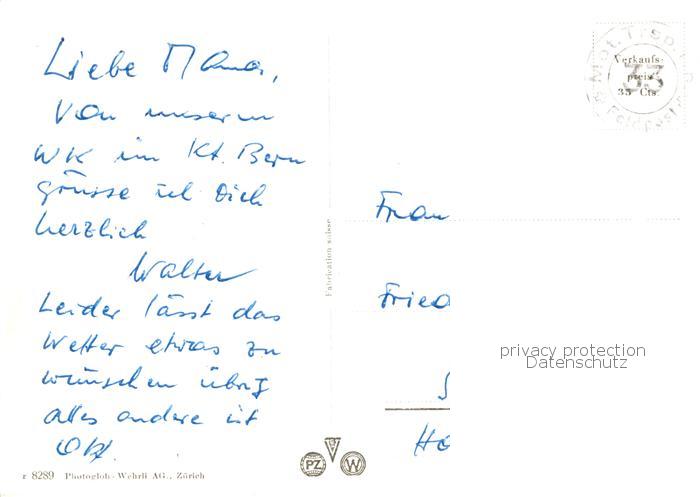 Liebe Mama,
Von unserm
WK im Kt. Bern
grüsse ich Dich
herzlich
Walter
Leider lässt das
Wetter etwas zu
wünschen übrig
alles andere ist
OK.
r 8289 Photoglob-Wehrli AG., Zürich
Fabrication suisse
PZ W
Verkaufs-
preis
35 Cts.
33
Mot. Trsp.
Feldpost
Frau
Fried
S
Ho
privacy protection
Datenschutz